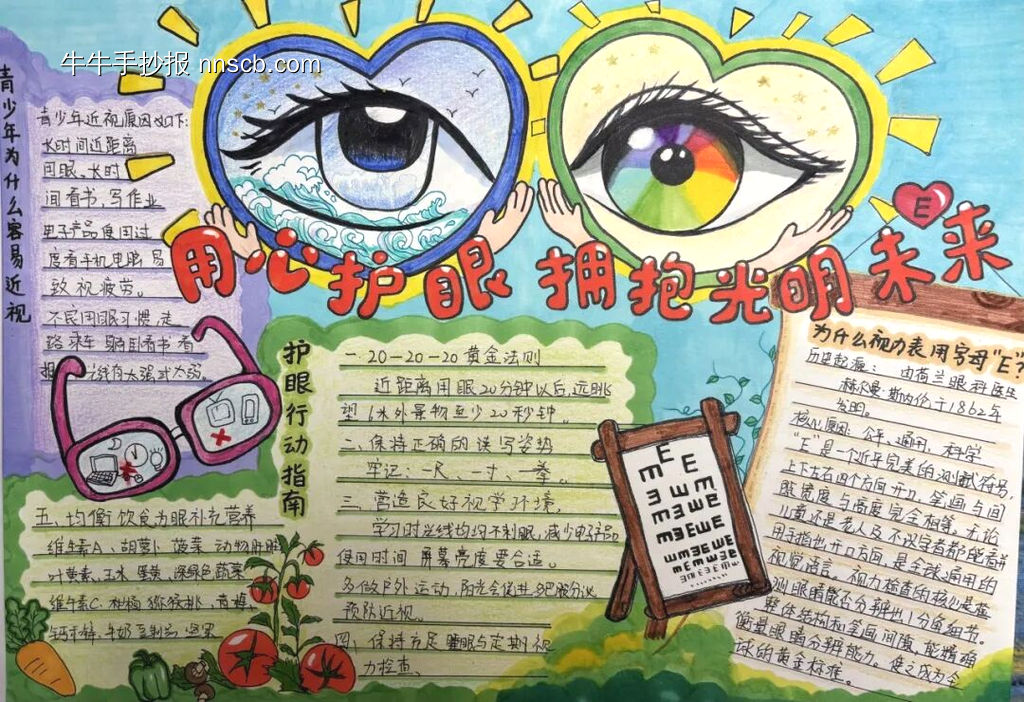 牛牛手抄报 nnscb.com
用心护眼 拥抱光明未来
E
青少年为什么容易近视
青少年近视原因如下:
长时间近距离
间看书、写作业
电子产品使用过
度看手机电脑 易
致视疲劳。
不良用眼习惯,走
路乘车 躺着看书 看
光线有太强或太弱。
护眼行动指南
一、20-20-20 黄金法则
近距离用眼20分钟以后,远眺
望6米外景物至少20秒钟。
二、保持正确的读写姿势
牢记:一尺、一寸、一拳。
三、营造良好视学环境,
学习时光线均均不刺眼,减少电子产品
使用时间 屏幕亮度要合适。
多做户外运动,阳光会促进多巴胺分泌
预防近视。
四、保持充足睡眠与定期视
力检查、
五、均衡饮食为眼补充营养
维生素A、胡萝卜 菠菜 动物肝脏
叶黄素、玉米 蛋黄、深绿色蔬菜
维生素C 柑橘 猕猴桃、青椒、
钙 锌、牛奶 豆制品
为什么视力表用字母“E”?
历史起源: 由荷兰眼科医生
赫尔曼·斯内伦于1862年
发明。
核心原因:公平、通用、科学
“E”是一个近乎完美的测试符号,
上下左右四个方向开口,笔画与间
隙宽度与高度完全相等,无论
儿童还是老人及不识字者都能看并
用手指出开口方向,是全球通用的
视觉语言。视力检查的核心是在
测眼睛能否分辨出1分角细节。
整体结构和笔画间隙,能精确
衡量眼睛分辨能力。使之成为全
球的黄金标准。
E